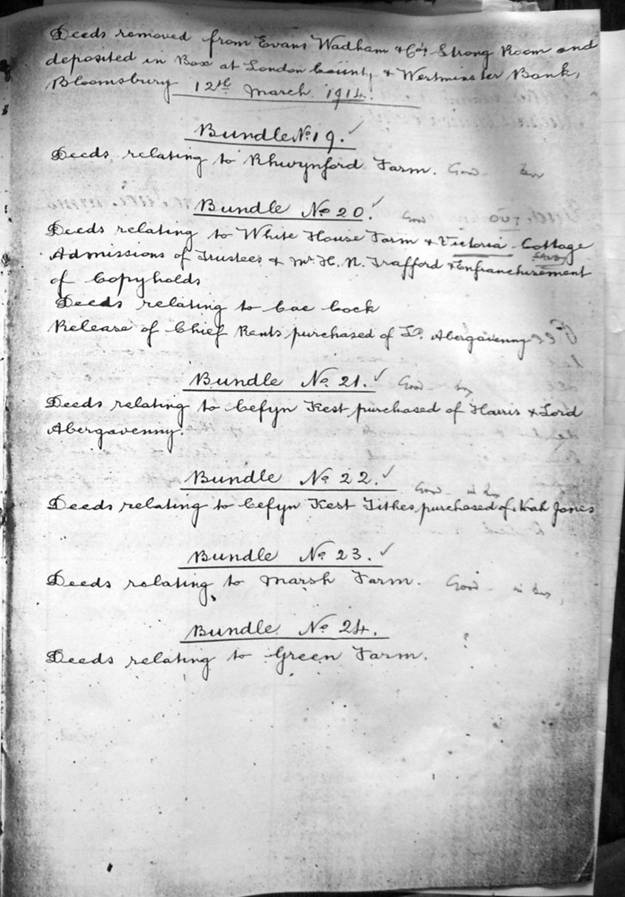 Deeds removed from Evans Wadham & Co's Strong Room and
deposited in Box at London County & Westminster Bank,
Bloomsbury 12th March 1914.
Bundle No 19. ✓
Deeds relating to Rhwynford Farm. Good
Bundle No 20. ✓ Good
Deeds relating to White House Farm & Victoria Cottage
Admissions of Trustees & Mr H. N. Trafford & Enfranchisement
of Copyholds
Deeds relating to Cae Cock
Release of Chief Rents purchased of Ld. Abergavenny
Bundle No 21. ✓ Good
Deeds relating to Cefyn Kest purchased of Harris & Lord
Abergavenny.
Bundle No 22. ✓ Good in box
Deeds relating to Cefyn Kest Tithes purchased of Jones
Bundle No 23. ✓
Deeds relating to Marsh Farm. Good in box,
Bundle No 24.
Deeds relating to Green Farm.